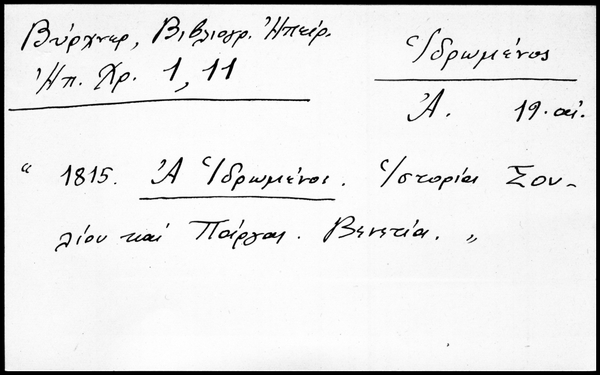 Βύρχνερ, Βιβλιογρ. Ἠπείρ.
Ἠπ. Χρ. 1, 11
Ἱδρωμένος
Ἀ. 19. αἰ.
“ 1815. Ἀ Ἱδρωμένος. Ἱστορία Σου-
λίου καί Πάργας. Βενετία. „